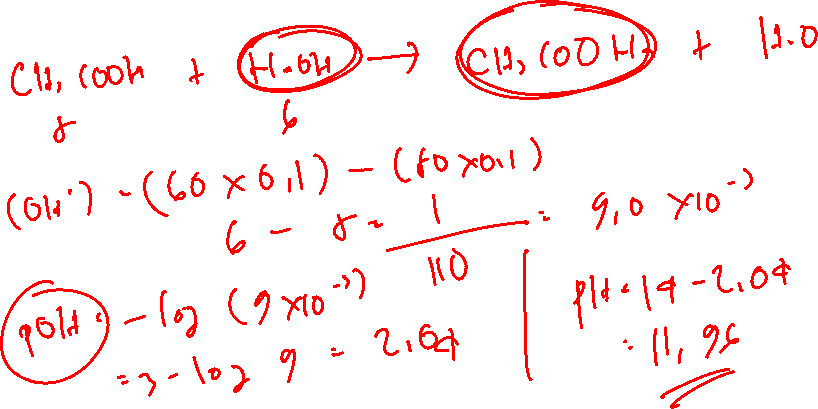 CH₃COOH + H-OH → CH₃COOH + H₂O
8 6
(OH⁻) = (60 x 0,1) - (80 x 0,1)
6 - 8 = 1/110 = 9,0 x 10⁻³
pOH = - log (9 x 10⁻³)
= 3 - log 9 = 2,04
pH = 14 - 2,04
= 11,96